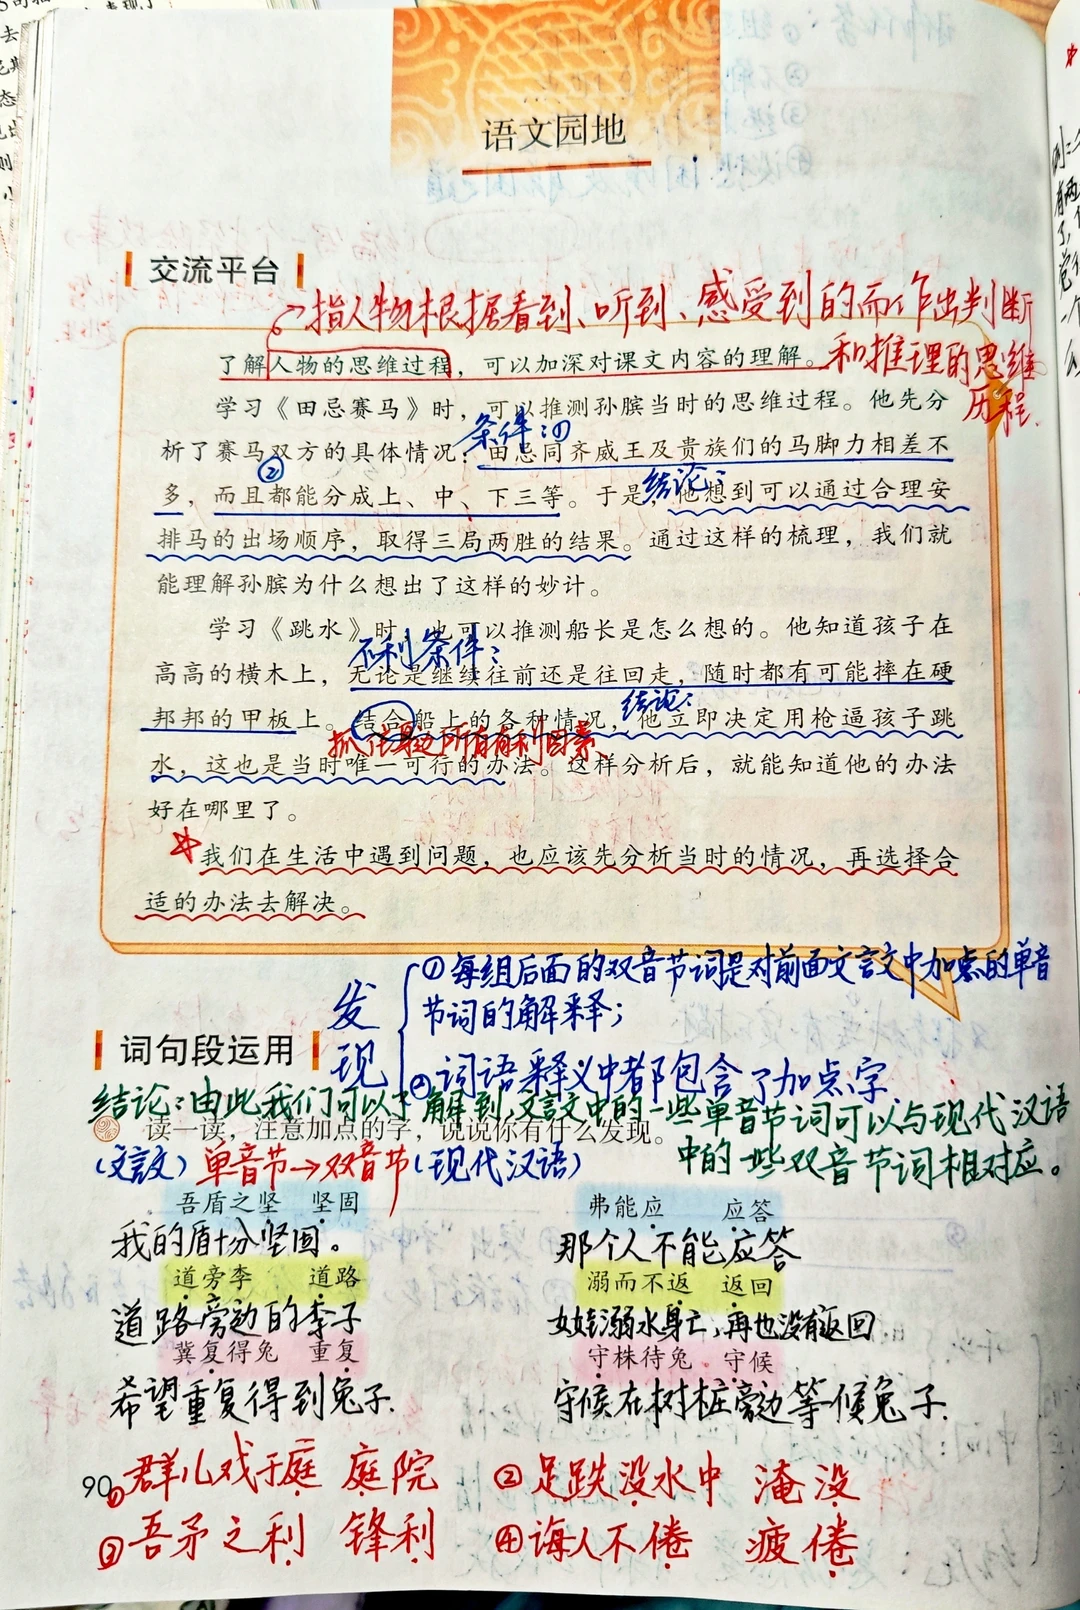 语文园地
交流平台
指人物根据看到、听到、感受到的而作出判断
和推理的思维
历程.
了解人物的思维过程，可以加深对课文内容的理解。
学习《田忌赛马》时，可以推测孙膑当时的思维过程。他先分
条件:①
析了赛马双方的具体情况：田忌同齐威王及贵族们的马脚力相差不
② 结论:
多，而且都能分成上、中、下三等。于是，他想到可以通过合理安
排马的出场顺序，取得三局两胜的结果。通过这样的梳理，我们就
能理解孙膑为什么想出了这样的妙计。
学习《跳水》时，也可以推测船长是怎么想的。他知道孩子在
不利条件:
高高的横木上，无论是继续往前还是往回走，随时都有可能摔在硬
结论:
邦邦的甲板上。结合船上的各种情况，他立即决定用枪逼孩子跳
抓住身边所有有利因素
水，这也是当时唯一可行的办法。这样分析后，就能知道他的办法
好在哪里了。
我们在生活中遇到问题，也应该先分析当时的情况，再选择合
适的办法去解决。
发现
①每组后面的双音节词是对前面文言文中加点的单音
节词的解释;
②词语释义中都包含了加点字
词句段运用
结论:由此我们可以了解到,文言文中的一些单音节词可以与现代汉语
中的一些双音节词相对应。
读一读，注意加点的字，说说你有什么发现。
(文言文) 单音节→双音节(现代汉语)
吾盾之坚 坚固 弗能应 应答
我的盾十分坚固。 那个人不能应答
道旁李 道路 溺而不返 返回
道路旁边的李子 女娃溺水身亡,再也没有返回
冀复得兔 重复 守株待兔 守候
希望重复得到兔子. 守候在树桩旁边等候兔子.
90
①群儿戏于庭 庭院 ②足跌没水中 淹没
③吾矛之利 锋利 ④诲人不倦 疲倦